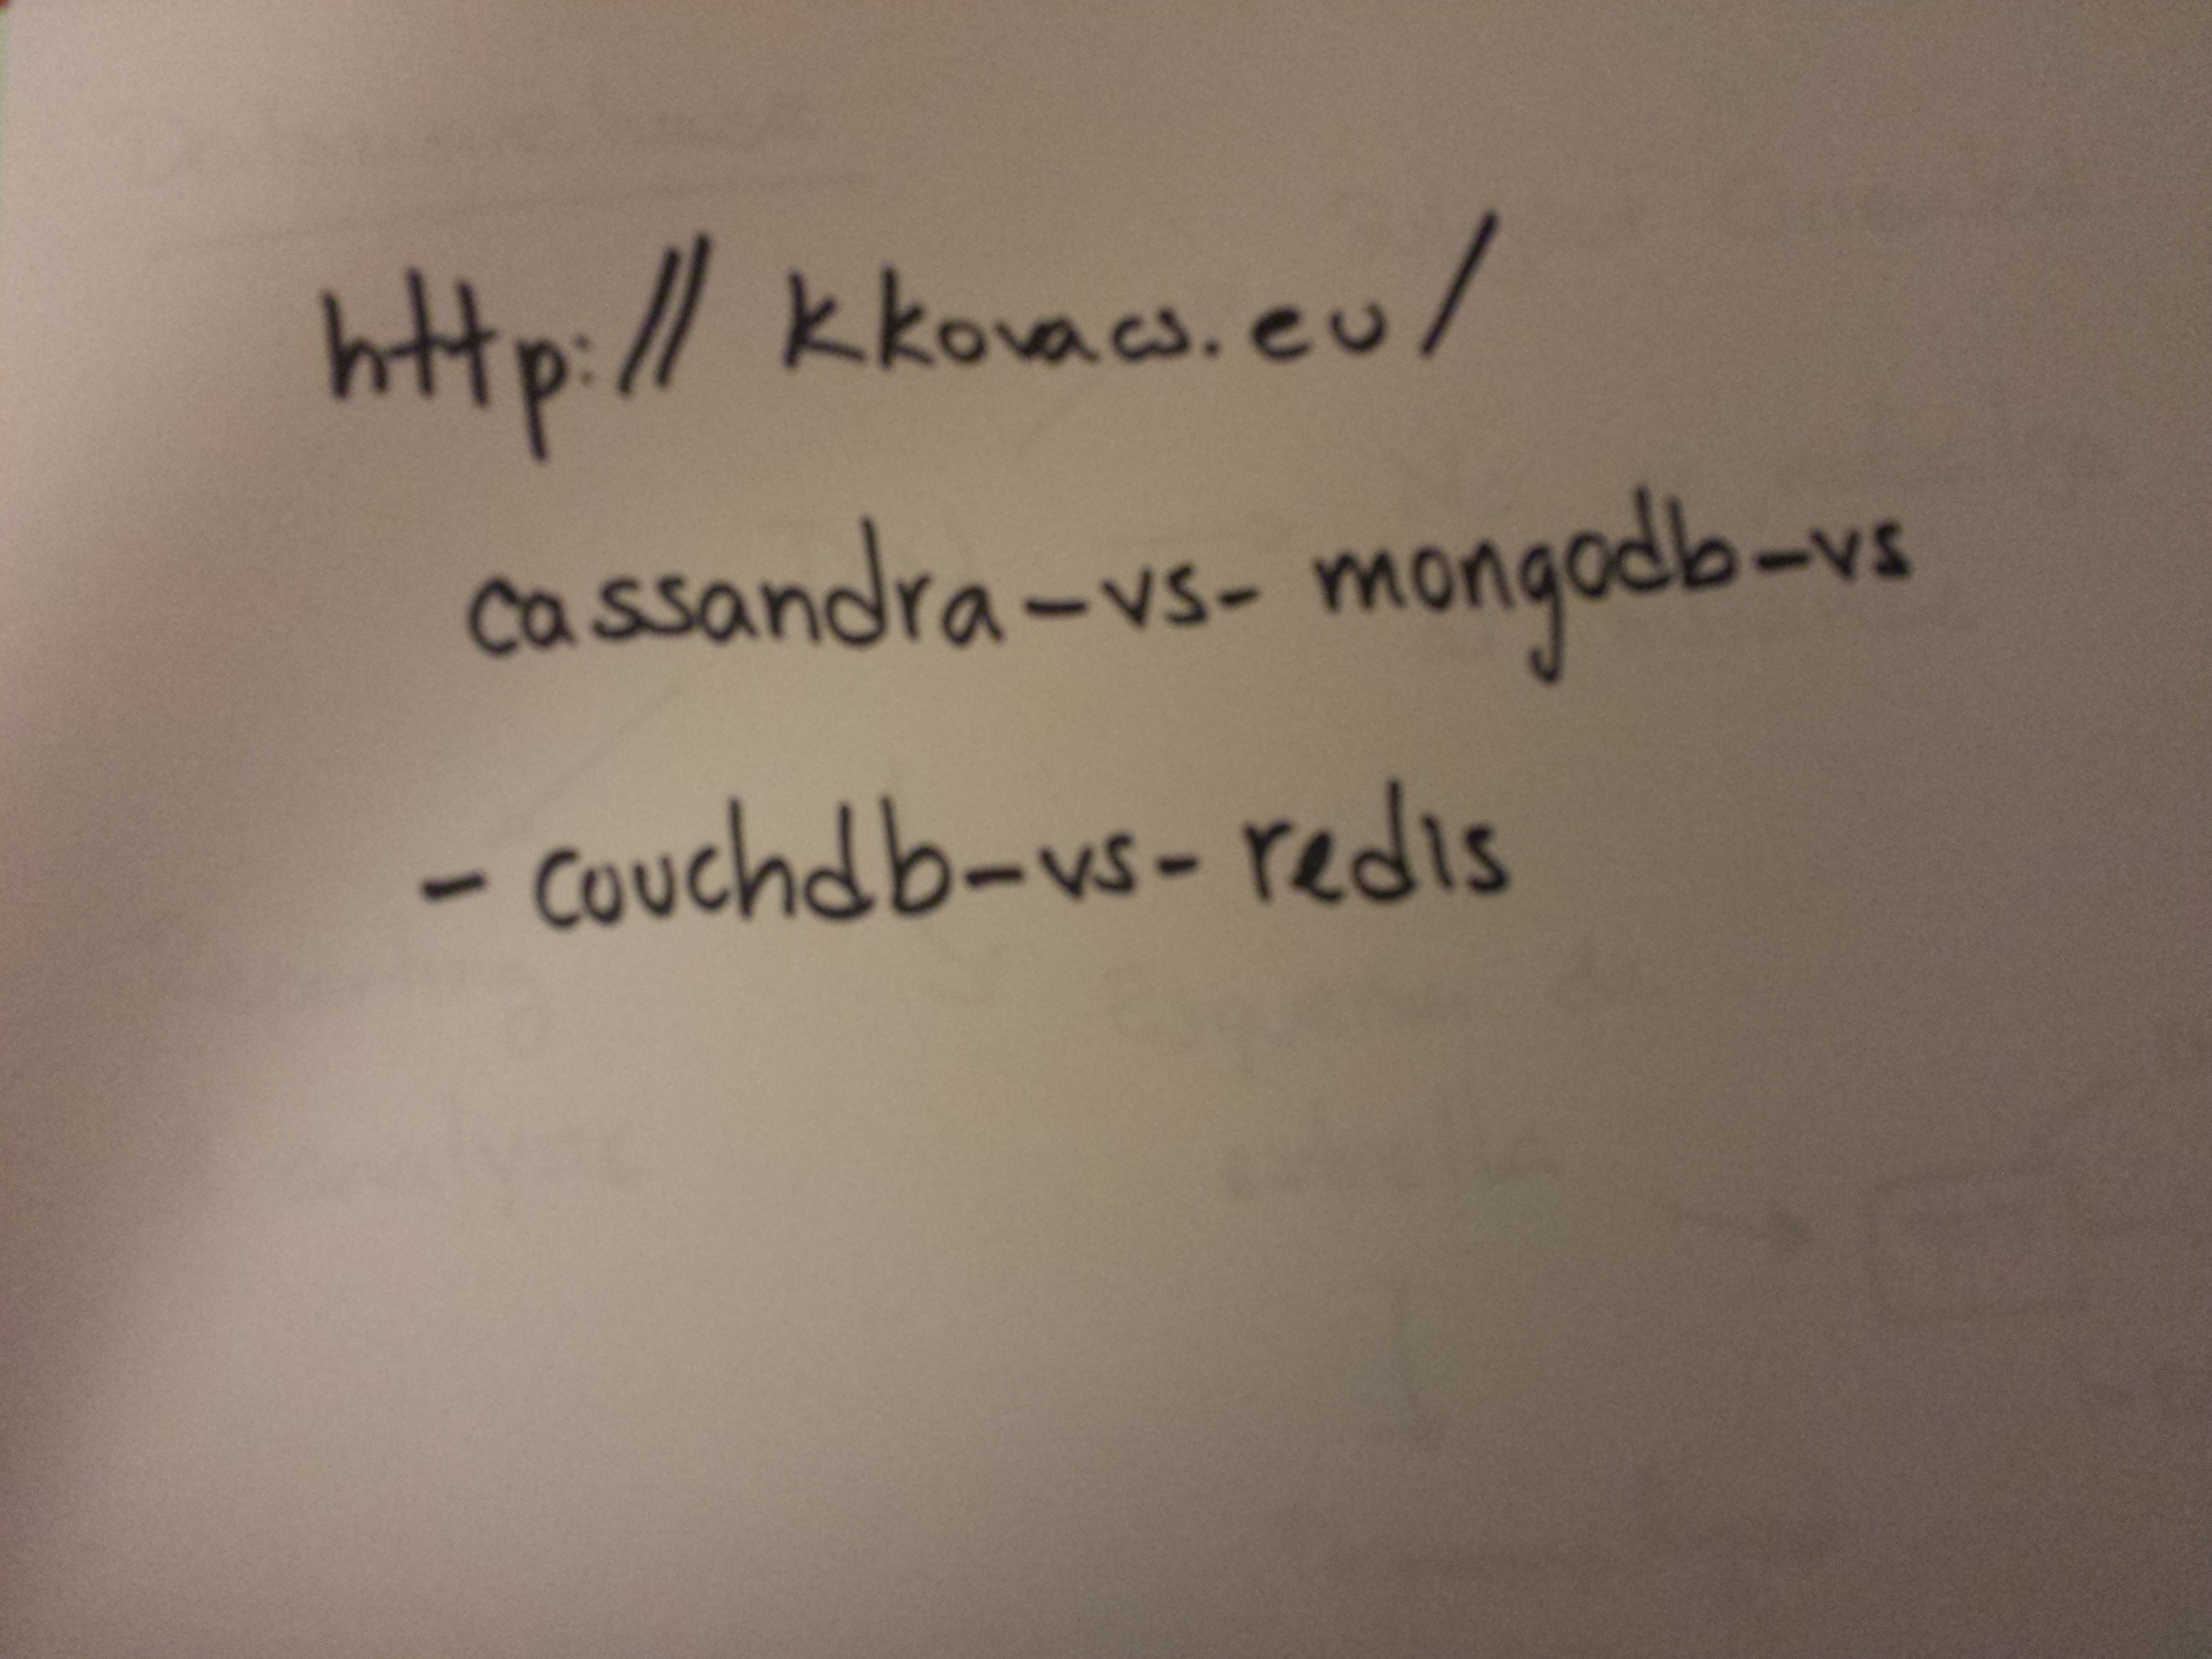 http://kkovacs.eu/
cassandra-vs-mongodb-vs
-couchdb-vs-redis